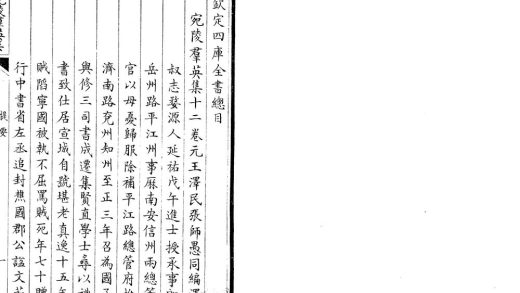 欽定四庫全書總目
宛陵羣英集十二卷元王澤民張師愚同編澤
叔志婺源人延祐戊午進士授承事
岳州路平江州事厯南安信州兩總
官以母憂歸服除補平江路總管府
濟南路兖州知州至正三年召為國
與修三司書成遷集賢直學士尋以
書致仕居宣城自號堪老真逸十五年
賊䧟寧國被執不屈罵賊死年七十贈
行中書省左丞追封譙國郡公諡文
提要
一